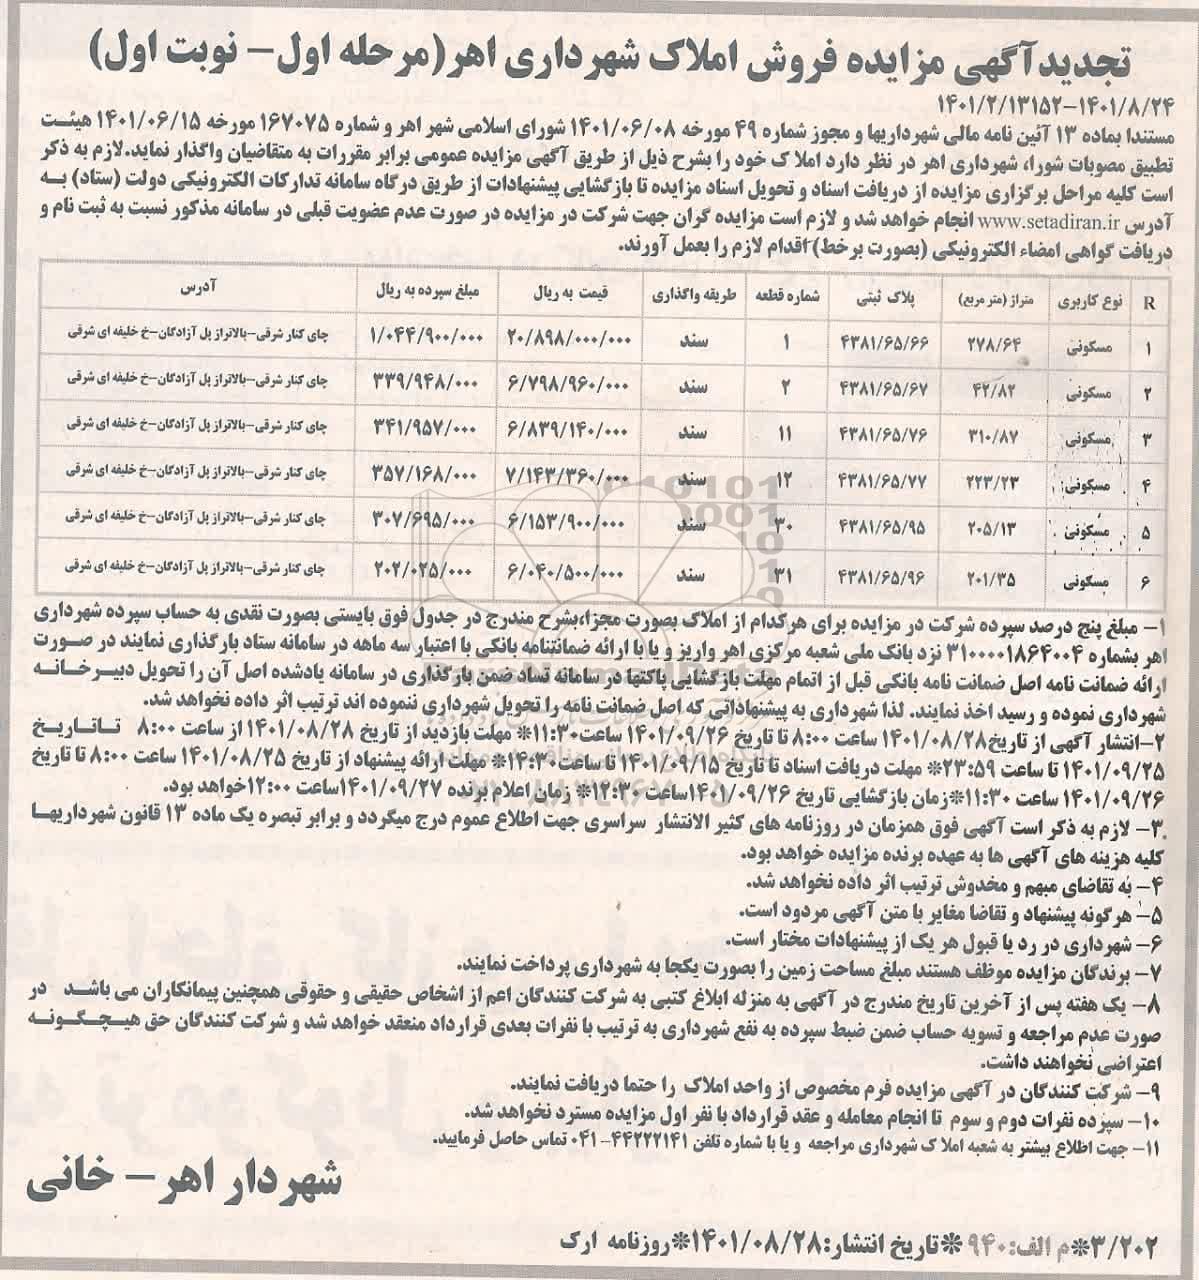 تجدیدآگهی مزایده فروش املاک شهرداری اهر(مرحله اول- نوبت اول)
۱۴۰۱/۲/۱۳۱۵۲-۱۴۰۱/۸/۲۴
مستندا بماده ۱۳ آئین نامه مالی شهرداریها و مجوز شماره ۴۹ مورخه ۱۴۰۱/۰۶/۰۸ شورای اسلامی شهر اهر و شماره ۱۶۷۰۷۵ مورخه ۱۴۰۱/۰۶/۱۵ هیئت
تطبیق مصوبات شورا، شهرداری اهر در نظر دارد املاک خود را بشرح ذیل از طریق آگهی مزایده عمومی برابر مقررات به متقاضیان واگذار نماید.لازم به ذکر
است کلیه مراحل برگزاری مزایده از دریافت اسناد و تحویل اسناد مزایده تا بازگشایی پیشنهادات از طریق درگاه سامانه تدارکات الکترونیکی دولت (ستاد) به
آدرس www.setadiran.ir انجام خواهد شد و لازم است مزایده گران جهت شرکت در مزایده در صورت عدم عضویت قبلی در سامانه مذکور نسبت به ثبت نام و
دریافت گواهی امضاء الکترونیکی (بصورت برخط) اقدام لازم را بعمل آورند.
R نوع کاربری متراژ (متر مربع) پلاک ثبتی شماره قطعه طریقه واگذاری قیمت به ریال مبلغ سپرده به ریال آدرس
۱ مسکونی ۲۷۸/۶۴ ۴۳۸۱/۶۵/۶۶ ۱ سند ۲۰/۸۹۸/۰۰۰/۰۰۰ ۱/۰۴۴/۹۰۰/۰۰۰ چای کنار شرقی-بالاتراز پل آزادگان-خ خلیفه ای شرقی
۲ مسکونی ۴۲/۸۲ ۴۳۸۱/۶۵/۶۷ ۲ سند ۶/۷۹۸/۹۶۰/۰۰۰ ۳۳۹/۹۴۸/۰۰۰ چای کنار شرقی-بالاتراز پل آزادگان-خ خلیفه ای شرقی
۳ مسکونی ۳۱۰/۸۷ ۴۳۸۱/۶۵/۷۶ ۱۱ سند ۶/۸۳۹/۱۴۰/۰۰۰ ۳۴۱/۹۵۷/۰۰۰ چای کنار شرقی-بالاتراز پل آزادگان-خ خلیفه ای شرقی
۴ مسکونی ۲۲۳/۲۳ ۴۳۸۱/۶۵/۷۷ ۱۲ سند ۷/۱۴۳/۳۶۰/۰۰۰ ۳۵۷/۱۶۸/۰۰۰ چای کنار شرقی-بالاتراز پل آزادگان-خ خلیفه ای شرقی
۵ مسکونی ۲۰۵/۱۳ ۴۳۸۱/۶۵/۹۵ ۳۰ سند ۶/۱۵۳/۹۰۰/۰۰۰ ۳۰۷/۶۹۵/۰۰۰ چای کنار شرقی-بالاتراز پل آزادگان-خ خلیفه ای شرقی
۶ مسکونی ۲۰۱/۳۵ ۴۳۸۱/۶۵/۹۶ ۳۱ سند ۶/۰۴۰/۵۰۰/۰۰۰ ۲۰۲/۰۲۵/۰۰۰ چای کنار شرقی-بالاتراز پل آزادگان-خ خلیفه ای شرقی
۱- مبلغ پنج درصد سپرده شرکت در مزایده برای هرکدام از املاک بصورت مجزا،بشرح مندرج در جدول فوق بایستی بصورت نقدی به حساب سپرده شهرداری
اهر بشماره ۳۱۰۰۰۰۱۸۶۴۰۰۴ نزد بانک ملی شعبه مرکزی اهر واریز و یا با ارائه ضمانتنامه بانکی با اعتبار سه ماهه در سامانه ستاد بارگذاری نمایند در صورت
ارائه ضمانت نامه اصل ضمانت نامه بانکی قبل از اتمام مهلت بازگشایی پاکتها در سامانه تساد ضمن بارگذاری در سامانه یادشده اصل آن را تحویل دبیرخانه
شهرداری نموده و رسید اخذ نمایند. لذا شهرداری به پیشنهاداتی که اصل ضمانت نامه را تحویل شهرداری ننموده اند ترتیب اثر داده نخواهد شد.
۲-انتشار آگهی از تاریخ۱۴۰۱/۰۸/۲۸ ساعت ۸:۰۰ تا تاریخ ۱۴۰۱/۰۹/۲۶ ساعت۱۱:۳۰* مهلت بازدید از تاریخ ۱۴۰۱/۰۸/۲۸ از ساعت ۸:۰۰ تاتاریخ
۱۴۰۱/۰۹/۲۵ تا ساعت ۲۳:۵۹* مهلت دریافت اسناد تا تاریخ ۱۴۰۱/۰۹/۱۵ تا ساعت ۱۴:۳۰* مهلت ارائه پیشنهاد از تاریخ ۱۴۰۱/۰۸/۲۵ ساعت ۸:۰۰ تا تاریخ
۱۴۰۱/۰۹/۲۶ ساعت ۱۱:۳۰*زمان بازگشایی تاریخ ۱۴۰۱/۰۹/۲۶ساعت ۱۲:۳۰* زمان اعلام برنده ۱۴۰۱/۰۹/۲۷ساعت ۱۲:۰۰خواهد بود.
۳- لازم به ذکر است آگهی فوق همزمان در روزنامه های کثیر الانتشار سراسری جهت اطلاع عموم درج میگردد و برابر تبصره یک ماده ۱۳ قانون شهرداریها
کلیه هزینه های آگهی ها به عهده برنده مزایده خواهد بود.
۴- به تقاضای مبهم و مخدوش ترتیب اثر داده نخواهد شد.
۵- هرگونه پیشنهاد و تقاضا مغایر با متن آگهی مردود است.
۶- شهرداری در رد یا قبول هر یک از پیشنهادات مختار است.
۷- برندگان مزایده موظف هستند مبلغ مساحت زمین را بصورت یکجا به شهرداری پرداخت نمایند.
۸- یک هفته پس از آخرین تاریخ مندرج در آگهی به منزله ابلاغ کتبی به شرکت کنندگان اعم از اشخاص حقیقی و حقوقی همچنین پیمانکاران می باشد در
صورت عدم مراجعه و تسویه حساب ضمن ضبط سپرده به نفع شهرداری به ترتیب با نفرات بعدی قرارداد منعقد خواهد شد و شرکت کنندگان حق هیچگونه
اعتراضی نخواهند داشت.
۹- شرکت کنندگان در آگهی مزایده فرم مخصوص از واحد املاک را حتما دریافت نمایند.
۱۰- سپرده نفرات دوم و سوم تا انجام معامله و عقد قرارداد با نفر اول مزایده مسترد نخواهد شد.
۱۱- جهت اطلاع بیشتر به شعبه املاک شهرداری مراجعه و یا با شماره تلفن ۴۴۲۲۲۱۴۱-۰۴۱ تماس حاصل فرمایید.
شهردار اهر- خانی
۳/۲۰۲*م الف:۹۴۰*تاریخ انتشار:۱۴۰۱/۰۸/۲۸*روزنامه ارک